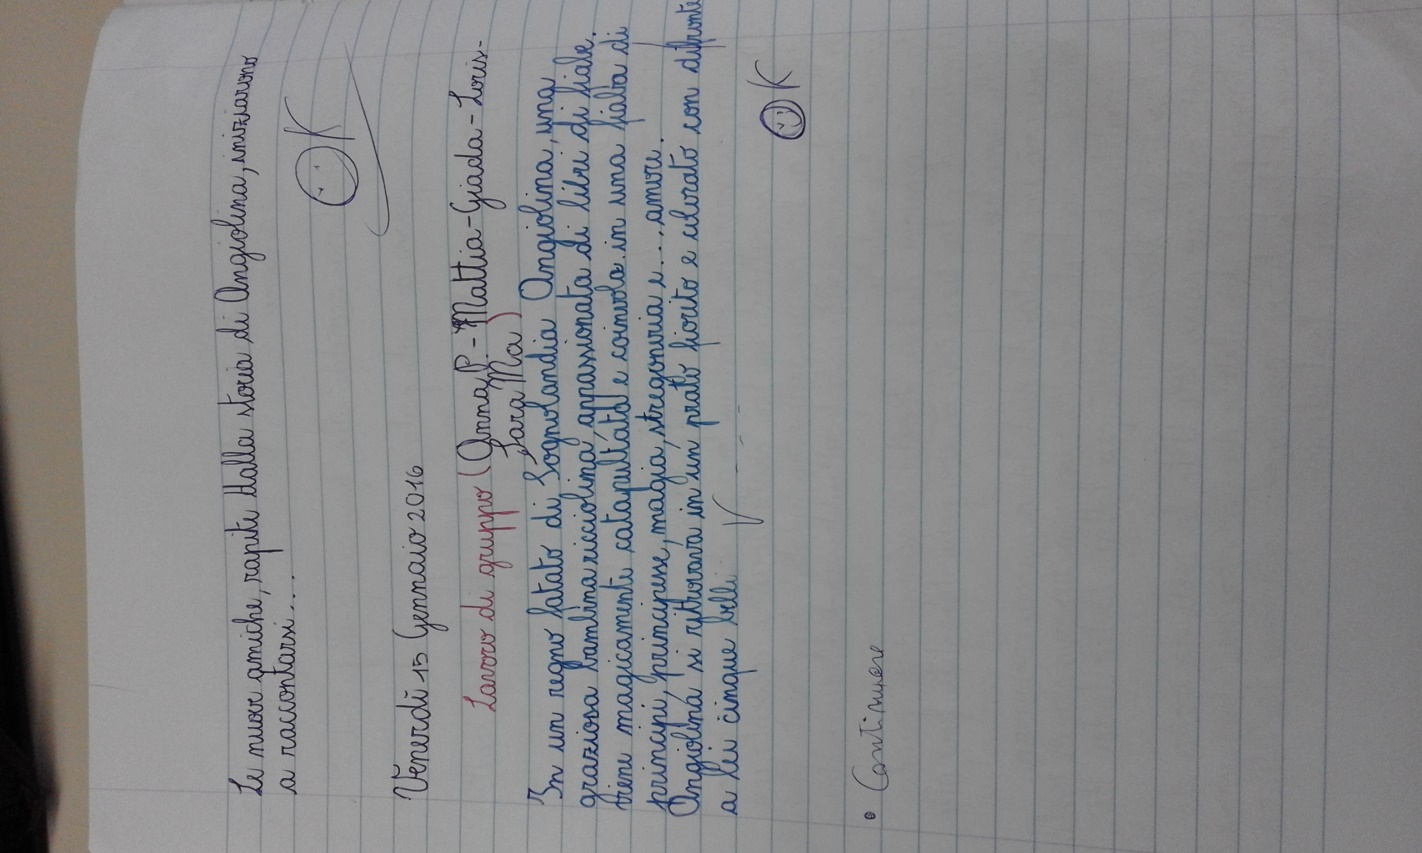 Le nuove amiche, rapite dalla storia di Angiolina, iniziarono
a raccontarsi...
OK
Venerdì 15 Gennaio 2016
Lavoro di gruppo (Anna P. - Mattia - Giada - Loris -
Sara Ma)
In un regno fatato di Sognolandia Angiolina, una
graziosa bambina ricciolina, appassionata di libri di fiabe,
viene magicamente catapultata e coinvola in una fiaba di
principi, principesse, magia, stregoneria e... amore.
Angiolina si ritrova in un prato fiorito e colorato con difronte
a lei cinque belli
OK
• Continuare